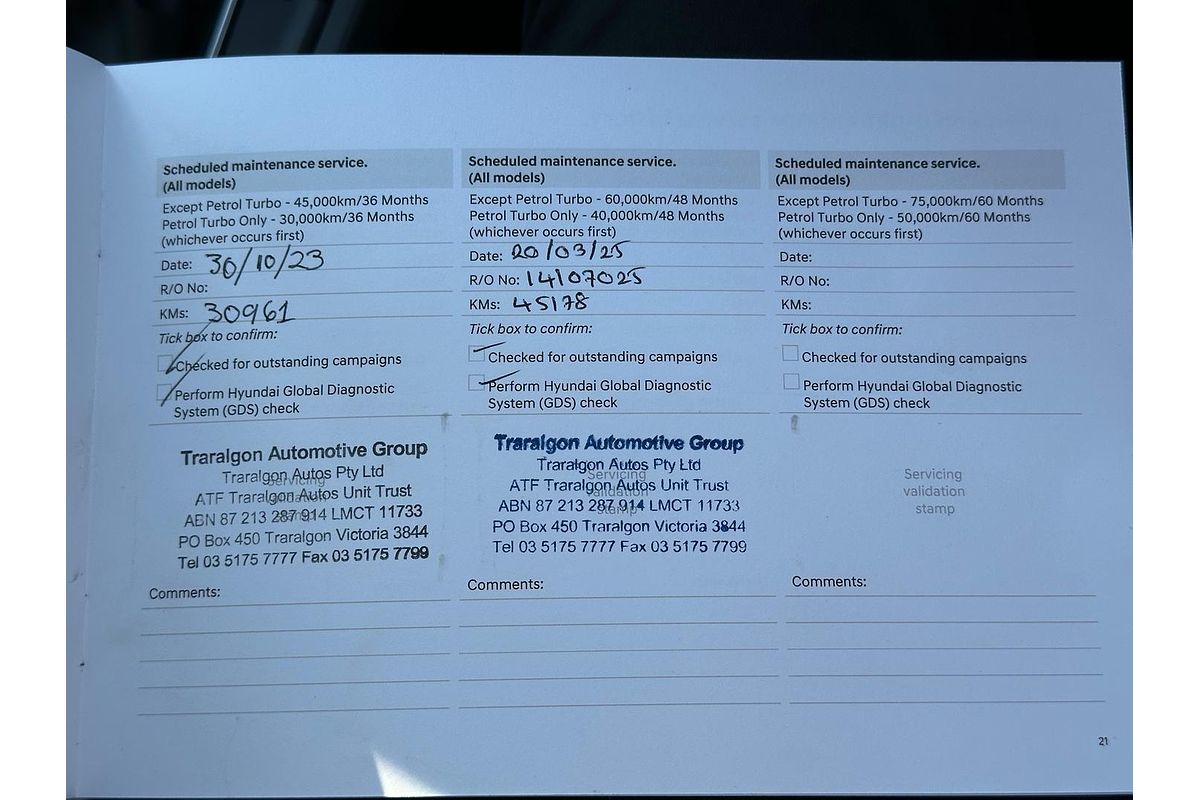 Scheduled maintenance service.
(All models)
Except Petrol Turbo - 45,000km/36 Months
Petrol Turbo Only - 30,000km/36 Months
(whichever occurs first)
Date: 30/10/23
R/O No:
KMs: 30961
Tick box to confirm:
Checked for outstanding campaigns
Perform Hyundai Global Diagnostic
System (GDS) check
Traralgon Automotive Group
Traralgon Autos Pty Ltd
Servicing
ATF Traralgon Autos Unit Trust
validation
ABN 87 213 287 914 LMCT 11733
stamp
PO Box 450 Traralgon Victoria 3844
Tel 03 5175 7777 Fax 03 5175 7799
Comments:
Scheduled maintenance service.
(All models)
Except Petrol Turbo - 60,000km/48 Months
Petrol Turbo Only - 40,000km/48 Months
(whichever occurs first)
Date: 20/03/25
R/O No: 14107025
KMs: 45178
Tick box to confirm:
Checked for outstanding campaigns
Perform Hyundai Global Diagnostic
System (GDS) check
Traralgon Automotive Group
Traralgon Autos Pty Ltd
Servicing
ATF Traralgon Autos Unit Trust
validation
ABN 87 213 287 914 LMCT 11733
stamp
PO Box 450 Traralgon Victoria 3844
Tel 03 5175 7777 Fax 03 5175 7799
Comments:
Scheduled maintenance service.
(All models)
Except Petrol Turbo - 75,000km/60 Months
Petrol Turbo Only - 50,000km/60 Months
(whichever occurs first)
Date:
R/O No:
KMs:
Tick box to confirm:
Checked for outstanding campaigns
Perform Hyundai Global Diagnostic
System (GDS) check
Servicing
validation
stamp
Comments:
21